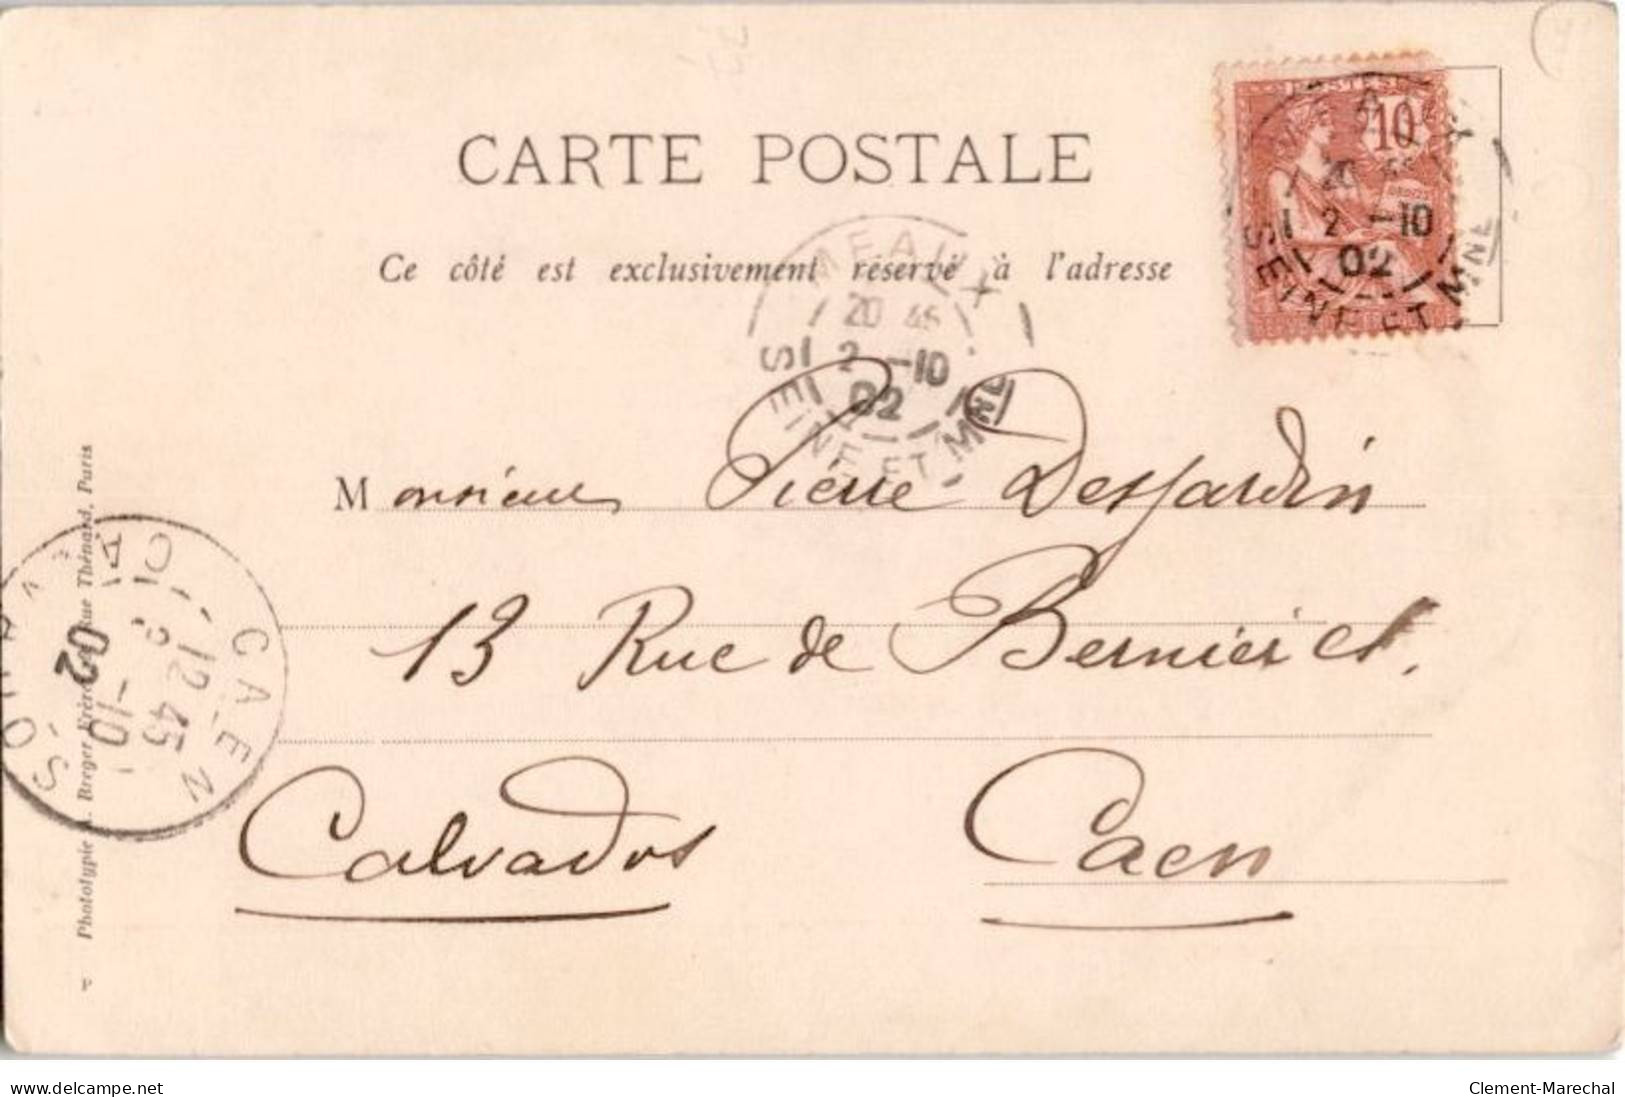 CARTE POSTALE
Ce côté est exclusivement réservé à l'adresse
POSTES
10
MEAUX
20 45
2 -10
02
SEINE ET MNE
MEAUX
20 45
2 -10
02
SEINE ET MNE
Monsieur Pierre Desjardin
13 Rue de Bernières.
Calvados Caen
CAEN
12 45
-10
02
CALVADOS
Phototypie A. Breger Frères, Rue Thénard, Paris
P
www.delcampe.net
Clement-Marechal